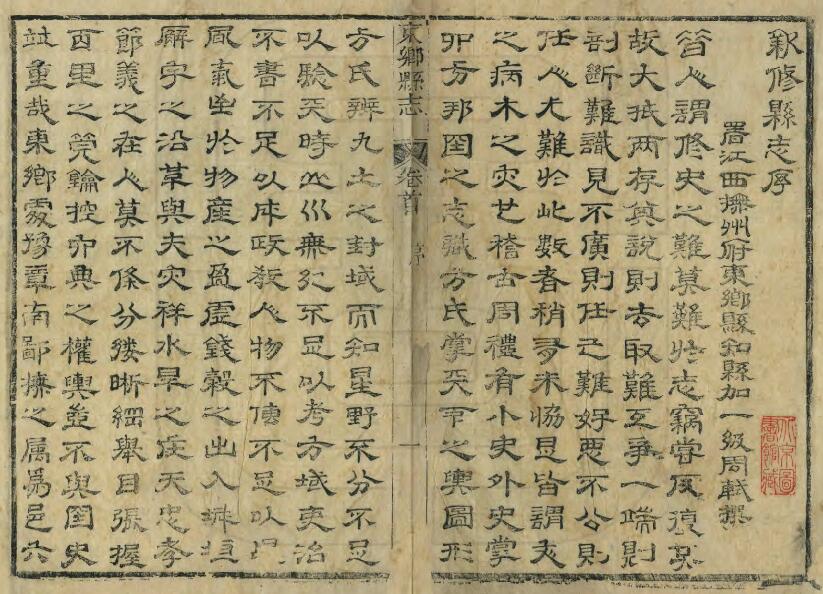 新修縣志序
署江西撫州府東鄉縣知縣加一級周軾撰
昔人謂修史之難莫難於志竊嘗反復系
故大抵两存其說則去取難互爭一端則
剖斷難識見不廣則任己難好惡不公則
任人尤難於此數者稍有未協昆皆謂文
之病木之灾也稽古周禮有小史外史掌
邦國之志職方氏掌天下之輿圖形
方氏辨九土之封域而知星野不分不足
以驗天時山川無紀不足以考方域吏治
不書不足以成政教人物不傳不足以
風氣出於物產之盈虛錢穀之出入城垣
廨字之沿革與夫灾祥水旱之在天忠孝
節義之在人莫不條分縷晰綱舉目張握
百里之筦鑰控六典之權輿並不與国史
並重哉東鄉處豫章南鄙撫之属爲邑六
東鄉縣志
卷首
序
一